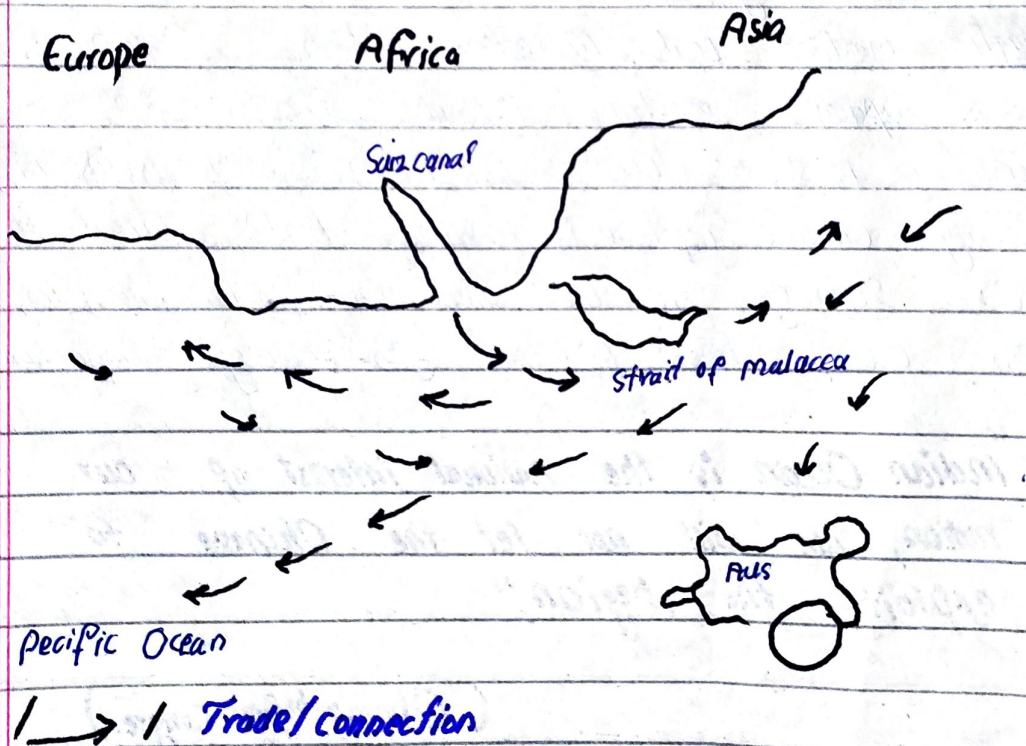 Europe Africa Asia
Suiz canal
Strait of malacca
AUS
Pecific Ocean
Trade/connection